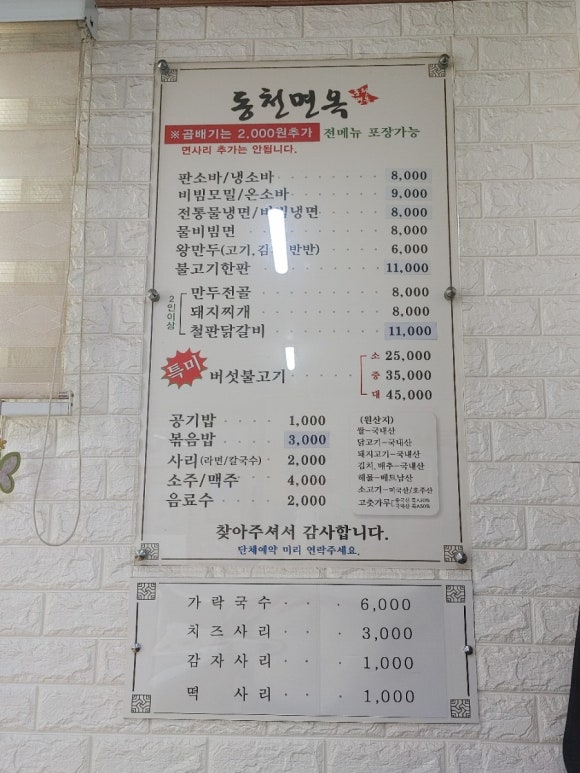 동천면옥
※ 곱배기는 2,000원추가 전메뉴 포장가능
면사리 추가는 안됩니다.
판소바/냉소바 8,000
비빔모밀/온소바 9,000
전통물냉면/비빔냉면 8,000
물비빔면 8,000
왕만두(고기, 반반) 6,000
불고기한판 11,000
2인이상
만두전골 8,000
돼지찌개 8,000
철판닭갈비 11,000
특미 버섯불고기
소 25,000
중 35,000
대 45,000
공기밥 1,000
볶음밥 3,000
사리(라면/칼국수) 2,000
소주/맥주 4,000
음료수 2,000
(원산지)
쌀-국내산
닭고기-국내산
돼지고기-국내산
김치, 배추-국내산
해물-베트남산
소고기-미국산/호주산
고춧가루
찾아주셔서 감사합니다.
단체예약 미리 연락주세요.
가락국수 6,000
치즈사리 3,000
감자사리 1,000
떡 사리 1,000